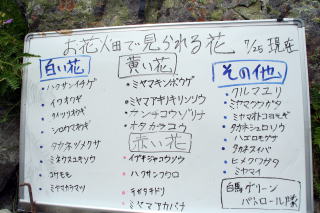 お花畑で見られる花 7/25 現在
白い花
ハクサンイチゲ
イワオウギ
タイツリオウギ
シロウマオウギ
タカネツメクサ
ミネウスユキソウ
コケモモ
ミヤマカラマツ
黄い花
ミヤマキンポウゲ
ミヤマアキノキリンソウ
カンチコウゾリナ
オタカラコウ
赤い花
イブキジャコウソウ
ハクサンフウロ
テガタチドリ
ミヤマアカバナ
その他
クルマユリ
ミヤマクワガタ
ミヤマオトコヨモギ
タカネシュロソウ
ハゴロモグサ
タカネスイバ
ヒメクワガタ
ミヤマイ
白馬グリーン
パトロール隊